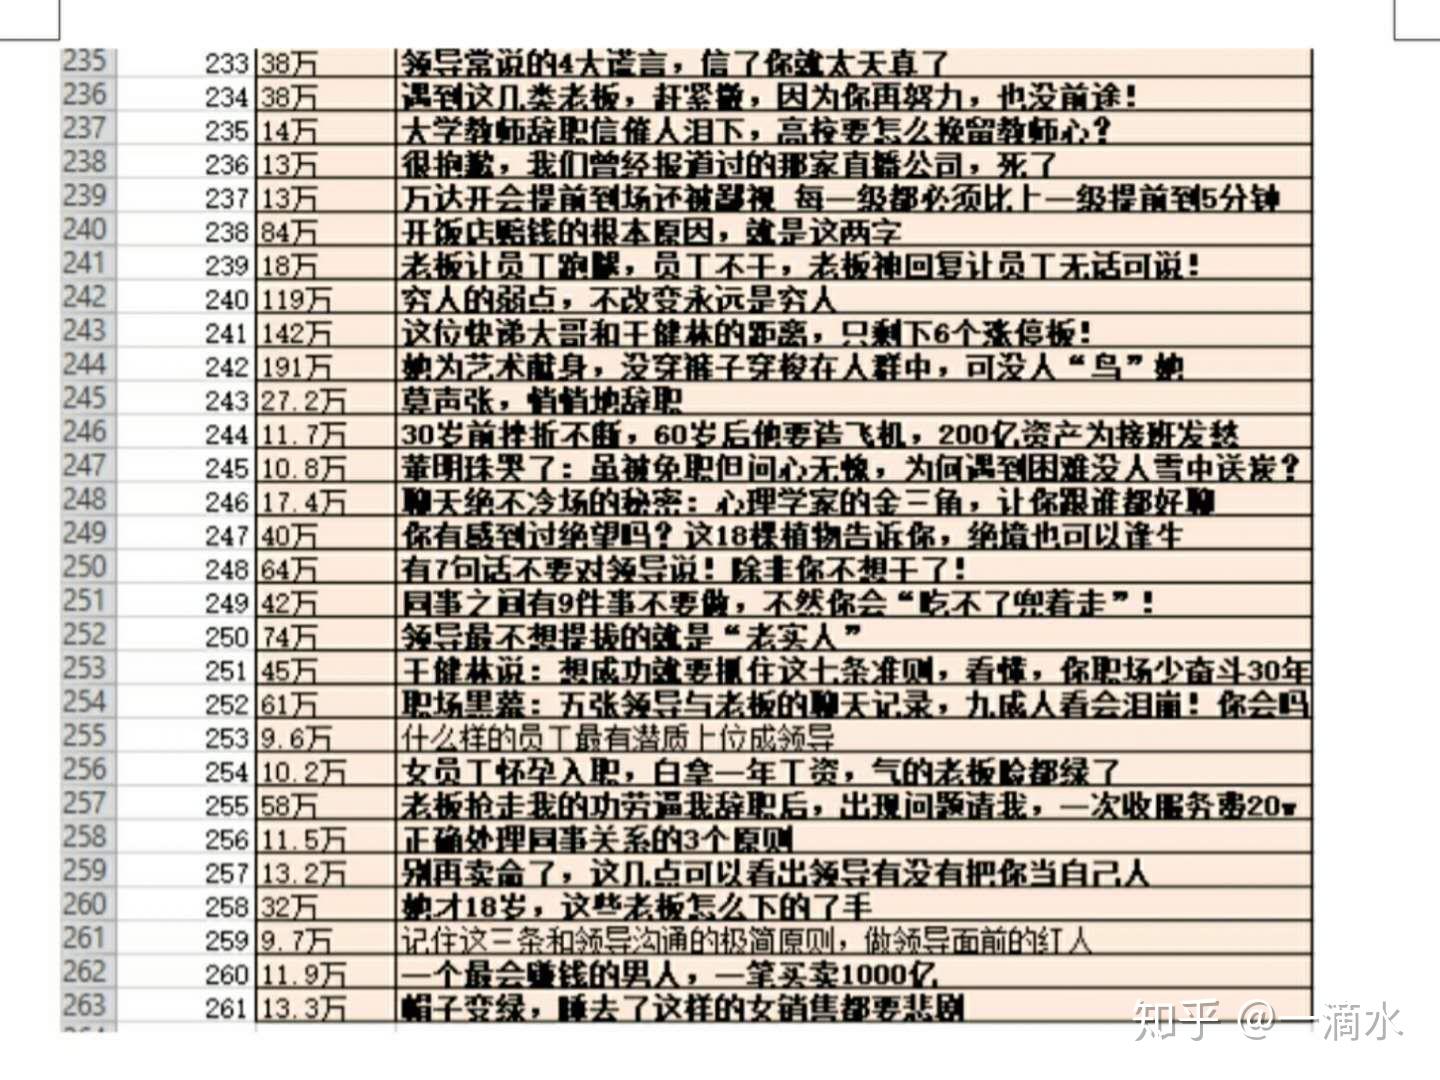 235 233 38万 领导常说的4大谎言，信了你就太天真了
236 234 38万 遇到这几类老板，赶紧撤，因为你再努力，也没前途！
237 235 14万 大学教师辞职信催人泪下，高校要怎么挽留教师心？
238 236 13万 很抱歉，我们曾经报道过的那家直播公司，死了
239 237 13万 万达开会提前到场还被鄙视 每一级都必须比上一级提前到5分钟
240 238 84万 开饭店赔钱的根本原因，就是这两字
241 239 18万 老板让员工跑腿，员工不干，老板神回复让员工无话可说！
242 240 119万 穷人的弱点，不改变永远是穷人
243 241 142万 这位快递大哥和王健林的距离，只剩下6个涨停板！
244 242 191万 她为艺术献身，没穿裤子穿梭在人群中，可没人“鸟”她
245 243 27.2万 莫声张，悄悄地辞职
246 244 11.7万 30岁前挫折不断，60岁后他要造飞机，200亿资产为接班发愁
247 245 10.8万 董明珠哭了：虽被免职但问心无愧，为何遇到困难没人雪中送炭？
248 246 17.4万 聊天绝不冷场的秘密：心理学家的金三角，让你跟谁都好聊
249 247 40万 你有感到过绝望吗？这18棵植物告诉你，绝境也可以逢生
250 248 64万 有7句话不要对领导说！除非你不想干了！
251 249 42万 同事之间有9件事不要做，不然你会“吃不了兜着走”！
252 250 74万 领导最不想提拔的就是“老实人”
253 251 45万 王健林说：想成功就要抓住这七条准则，看懂，你职场少奋斗30年
254 252 61万 职场黑幕：五张领导与老板的聊天记录，九成人看会泪崩！你会吗
255 253 9.6万 什么样的员工最有潜质上位成领导
256 254 10.2万 女员工怀孕入职，白拿一年工资，气的老板脸都绿了
257 255 58万 老板抢走我的功劳逼我辞职后，出现问题请我，一次收服务费20w
258 256 11.5万 正确处理同事关系的3个原则
259 257 13.2万 别再卖命了，这几点可以看出领导有没有把你当自己人
260 258 32万 她才18岁，这些老板怎么下的了手
261 259 9.7万 记住这三条和领导沟通的极简原则，做领导面前的红人
262 260 11.9万 一个最会赚钱的男人，一笔买卖1000亿
263 261 13.3万 帽子变绿，睡去了这样的女销售都要悲剧
知乎 @一滴水